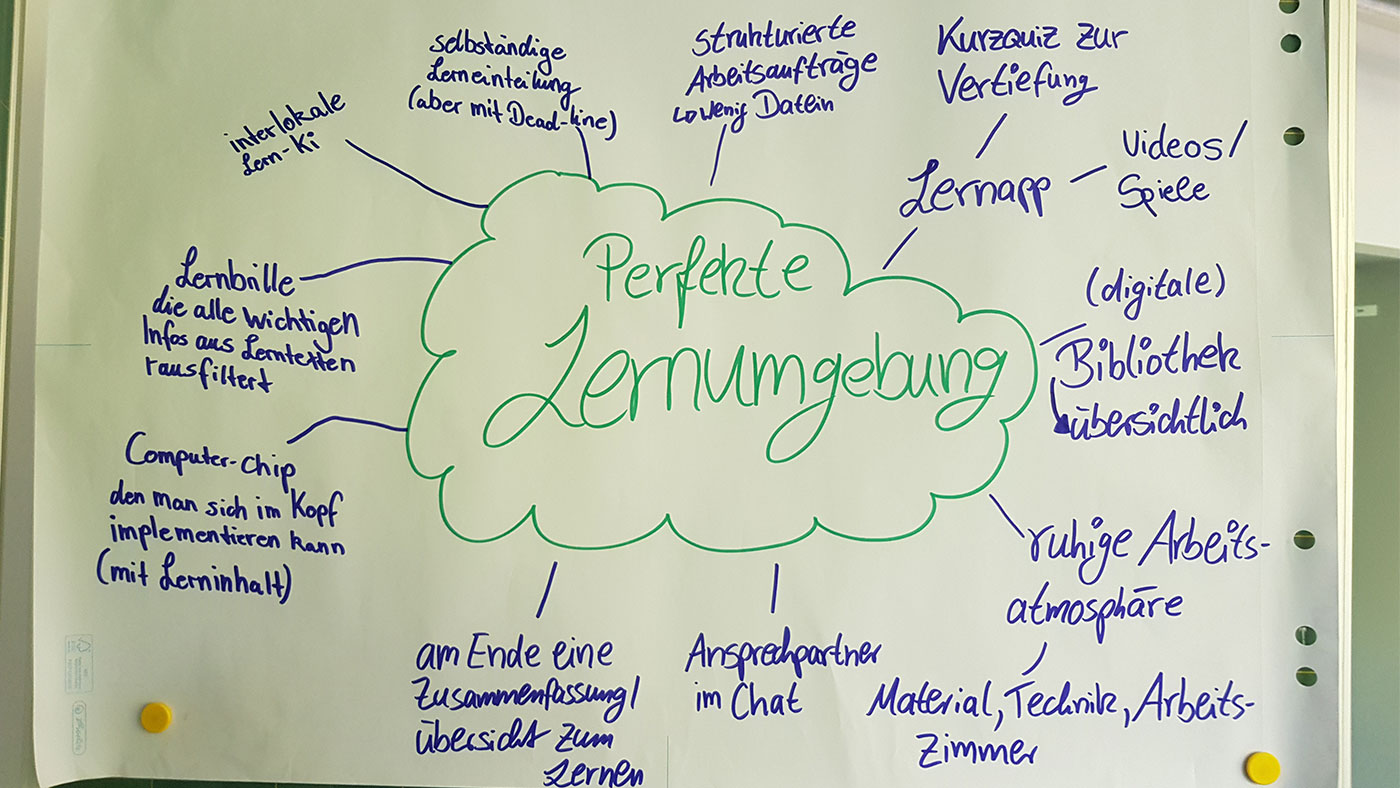 Perfekte
Lernumgebung
interlokale
Lern-Ki
selbständige
Lerneinteilung
(aber mit Dead-line)
strukturierte
Arbeitsaufträge
wenig Datein
Kurzquiz zur
Vertiefung
Lernapp
Videos/
Spiele
(digitale)
Bibliothek
übersichtlich
ruhige Arbeits-
atmosphäre
Material, Technik, Arbeits-
Zimmer
Ansprechpartner
im Chat
am Ende eine
Zusammenfassung/
übersicht zum
Lernen
Computer-chip
den man sich im Kopf
implementieren kann
(mit Lerninhalt)
Lernbrille
die alle wichtigen
Infos aus Lerntexten
rausfiltert